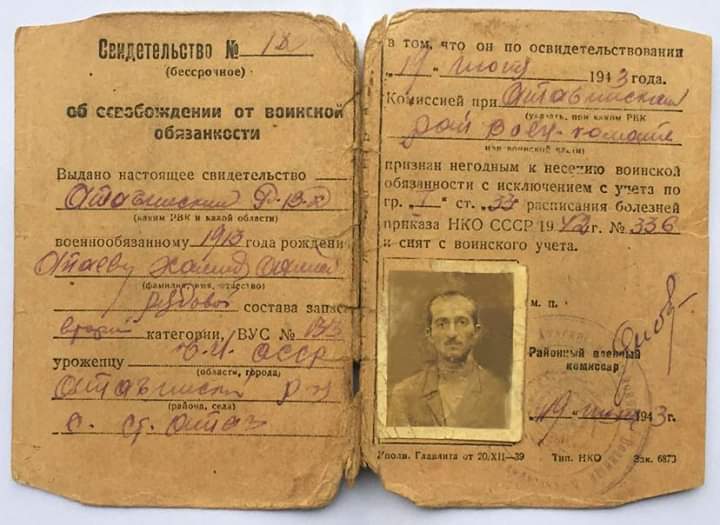 Свидетельство № 12
(бессрочное)
об освобождении от воинской
обязанности
Выдано настоящее свидетельство
(каким РВК и какой области)
военнообязанному 1913 года рождения
(фамилия, имя, отчество)
рядовой состава запаса
категории, ВУС № 133
уроженцу Ч.И. АССР
(области, города)
(района, села)
с. ст. Атаги
в том, что он по освидетельствовании
"19" июня 1943 года.
Комиссией при
(указать, при каком РВК
рай военкомате
или воинской части)
признан негодным к несению воинской
обязанности с исключением с учета по
гр. "1" ст. 33 расписания болезней
приказа НКО СССР 1942 г. № 336
и снят с воинского учета.
м. п.
Районный военный
комиссар
"19" июня 1943 г.
Уполн. Главлита от 20/XII—39 Тип. НКО Зак. 6873